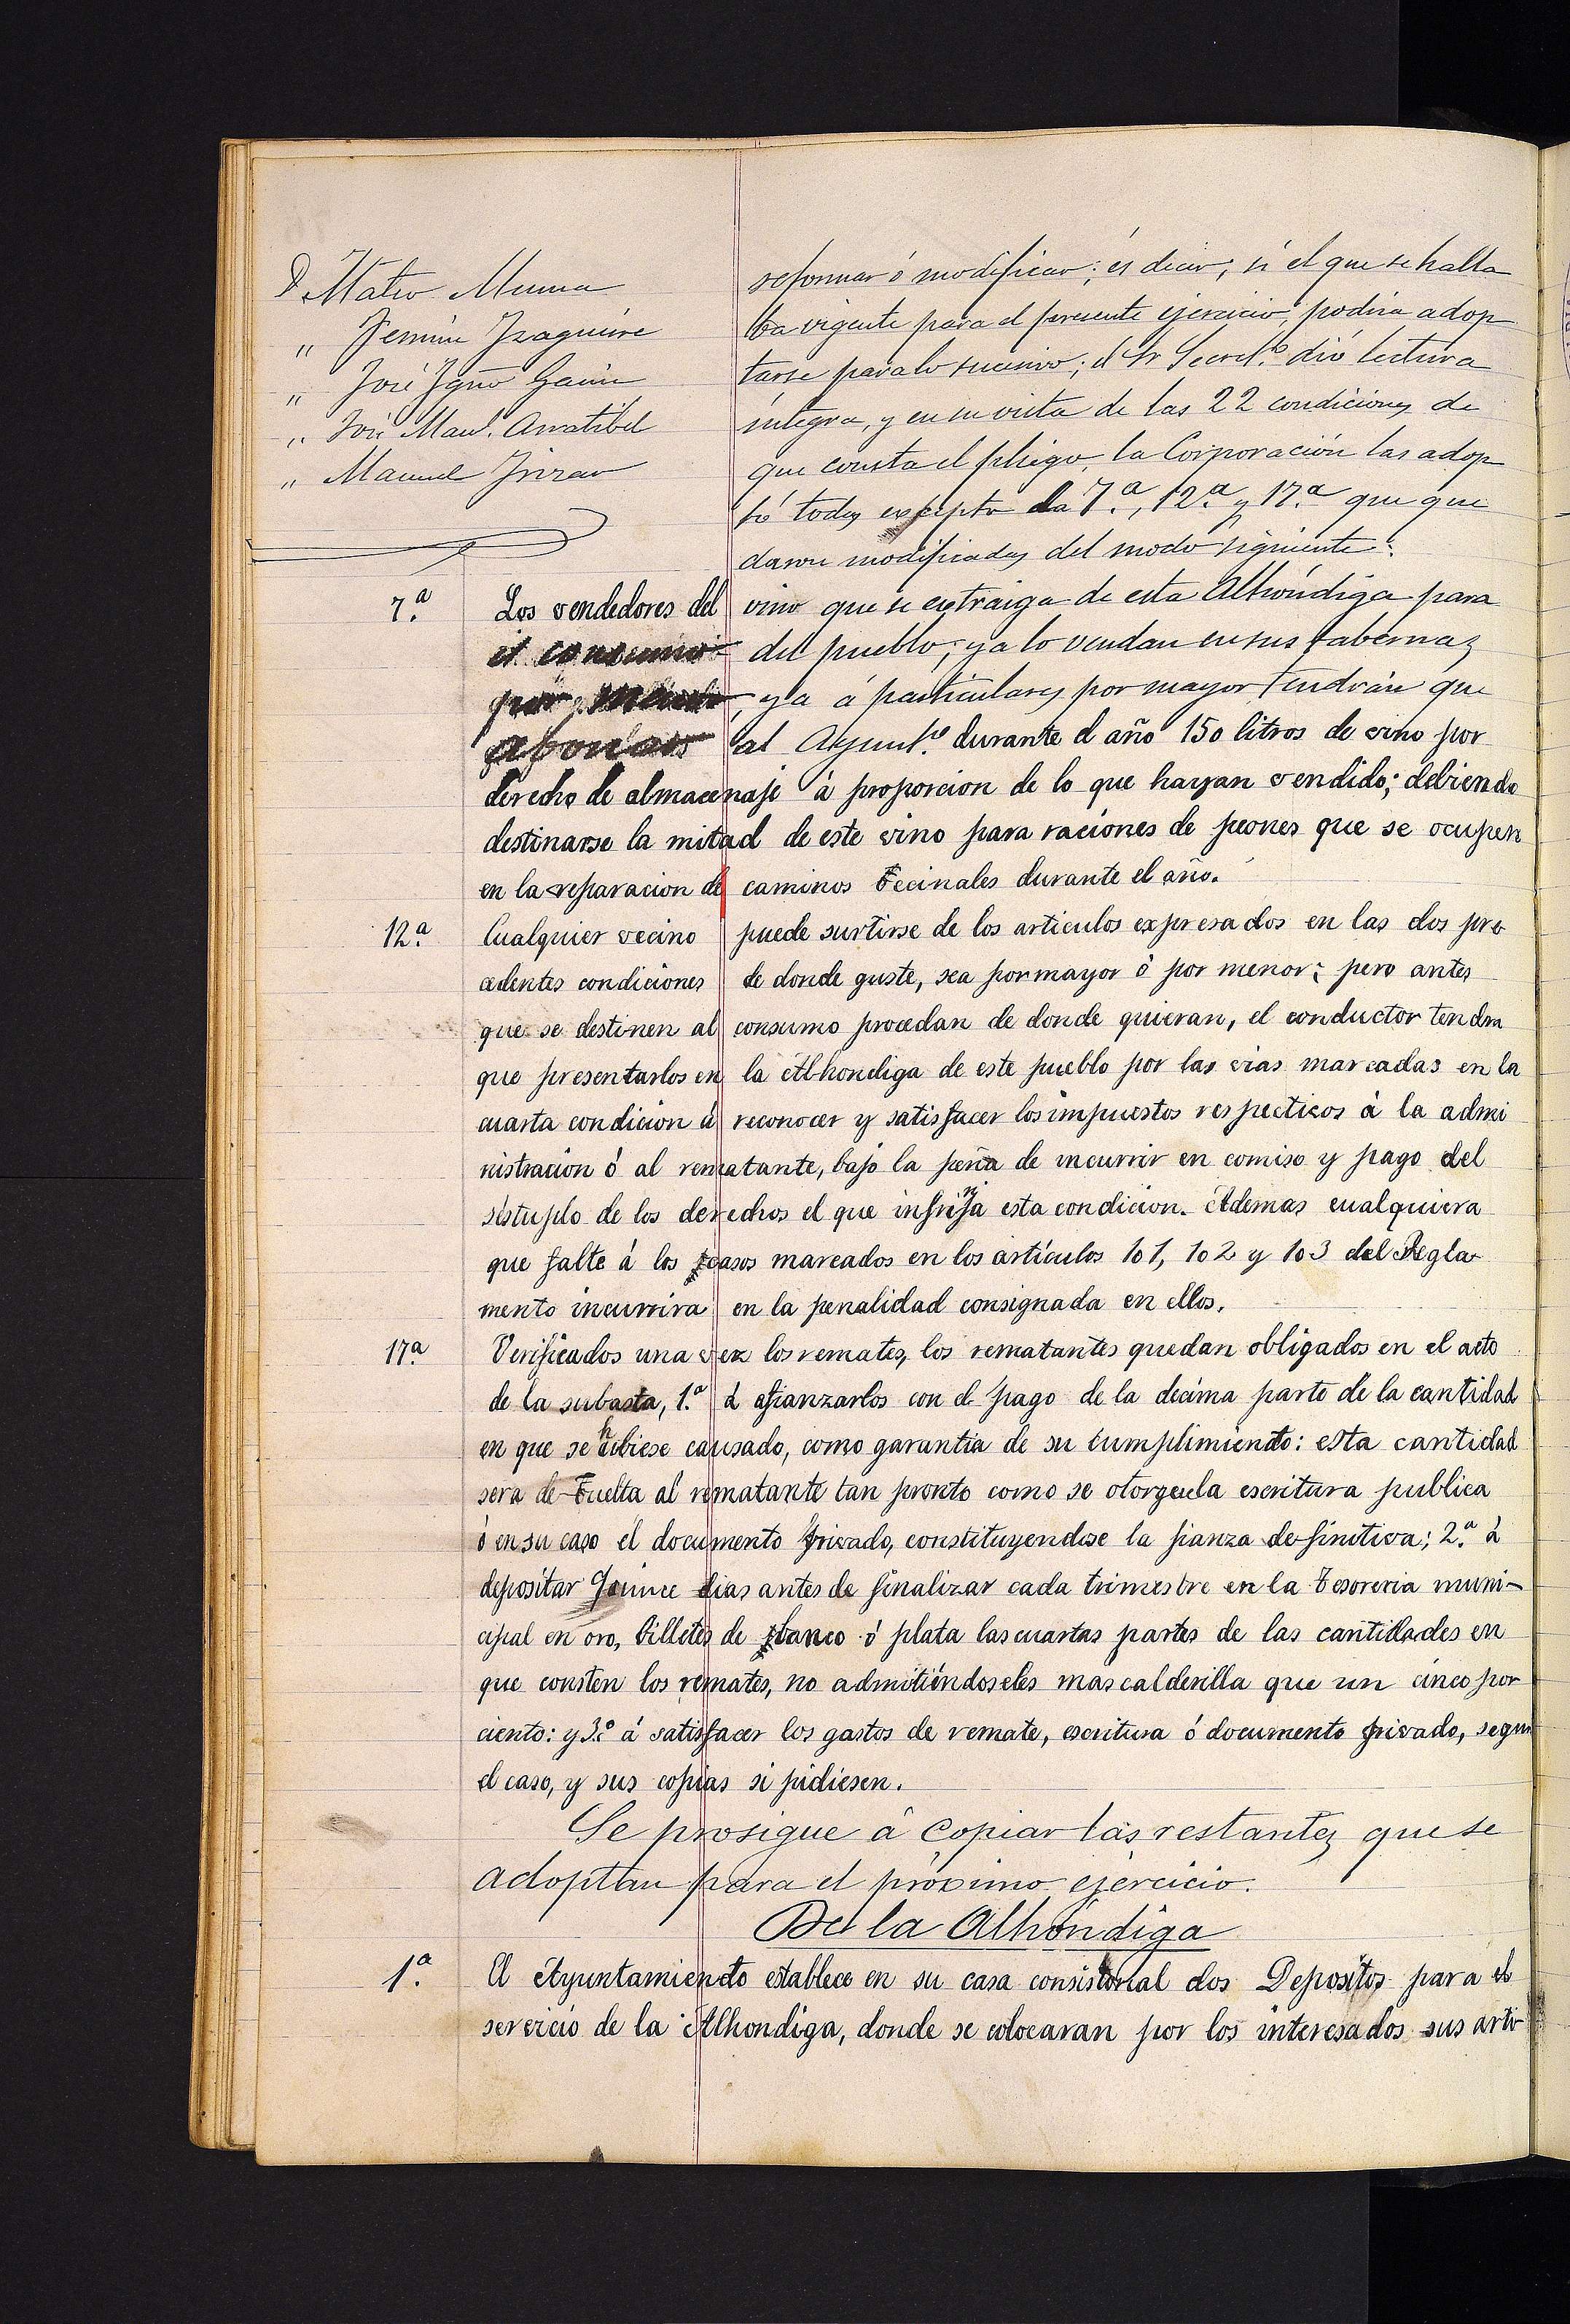 D. Mateo Munua
" Fermin Yzaguirre
" José Ygno Garin
" José Manl. Arratibel
" Manuel
reformar ó modificar; és decir, si el que se halla
ba vigente para el presente ejercicio, podria adop
tarse para lo sucesivo; el Sr Secreto. dió lectura
integra, y en su vista de las 22 condiciones de
que consta el pliego, la Corporación las adop
tó todas excepto la 7.ª, 12.ª y 17.ª que que
daron modificadas del modo siguiente:
7.ª Los vendedores del vino que se extraiga de esta Alhóndiga para
el consumo del pueblo, ya lo vendan en sus tabernas
por menor, ya á particulares por mayor tendrán que
abonar al Ayuntº. durante el año 150 litros de vino por
derecho de almacenaje á proporcion de lo que hayan vendido; debiendo
destinarse la mitad de este vino para raciones de peones que se ocupen
en la reparacion de caminos vecinales durante el año.
12.ª Cualquier vecino puede surtirse de los articulos expresados en las dos pre
cedentes condiciones de donde guste, sea por mayor ó por menor; pero antes
que se destinen al consumo procedan de donde quieran, el conductor tendra
que presentarlos en la Alhondiga de este pueblo por las vias marcadas en la
cuarta condicion á reconocer y satisfacer los impuestos respectivos á la admi
nistracion ó al rematante, bajo la pena de incurrir en comiso y pago del
séstuplo de los derechos el que infrinja esta condicion. Ademas cualquiera
que falte á los casos marcados en los artículos 101, 102 y 103 del Regla
mento incurrira en la penalidad consignada en ellos.
17.ª Verificados una vez los remates, los rematantes quedan obligados en el acto
de la subasta, 1.º á afianzarlos con el pago de la decima parte de la cantidad
en que se hubiese causado, como garantia de su cumplimiento: esta cantidad
sera devuelta al rematante tan pronto como se otorgue la escritura publica
ó en su caso el documento privado, constituyendose la fianza definitiva; 2.º á
depositar quince dias antes de finalizar cada trimestre en la tesoreria muni-
cipal en oro, billetes de banco ó plata las cuartas partes de las cantidades en
que consten los remates, no admitiéndoseles mas calderilla que un cinco por
ciento: y 3.º á satisfacer los gastos de remate, escritura ó documento privado, segun
el caso, y sus copias si pidiesen.
Se prosigue á copiar las restantes que se
adoptan para el próximo ejercicio.
De la Alhóndiga
1.ª El Ayuntamiento establece en su casa consistorial dos Depositos para el
servicio de la Alhondiga, donde se colocaran por los interesados sus arti